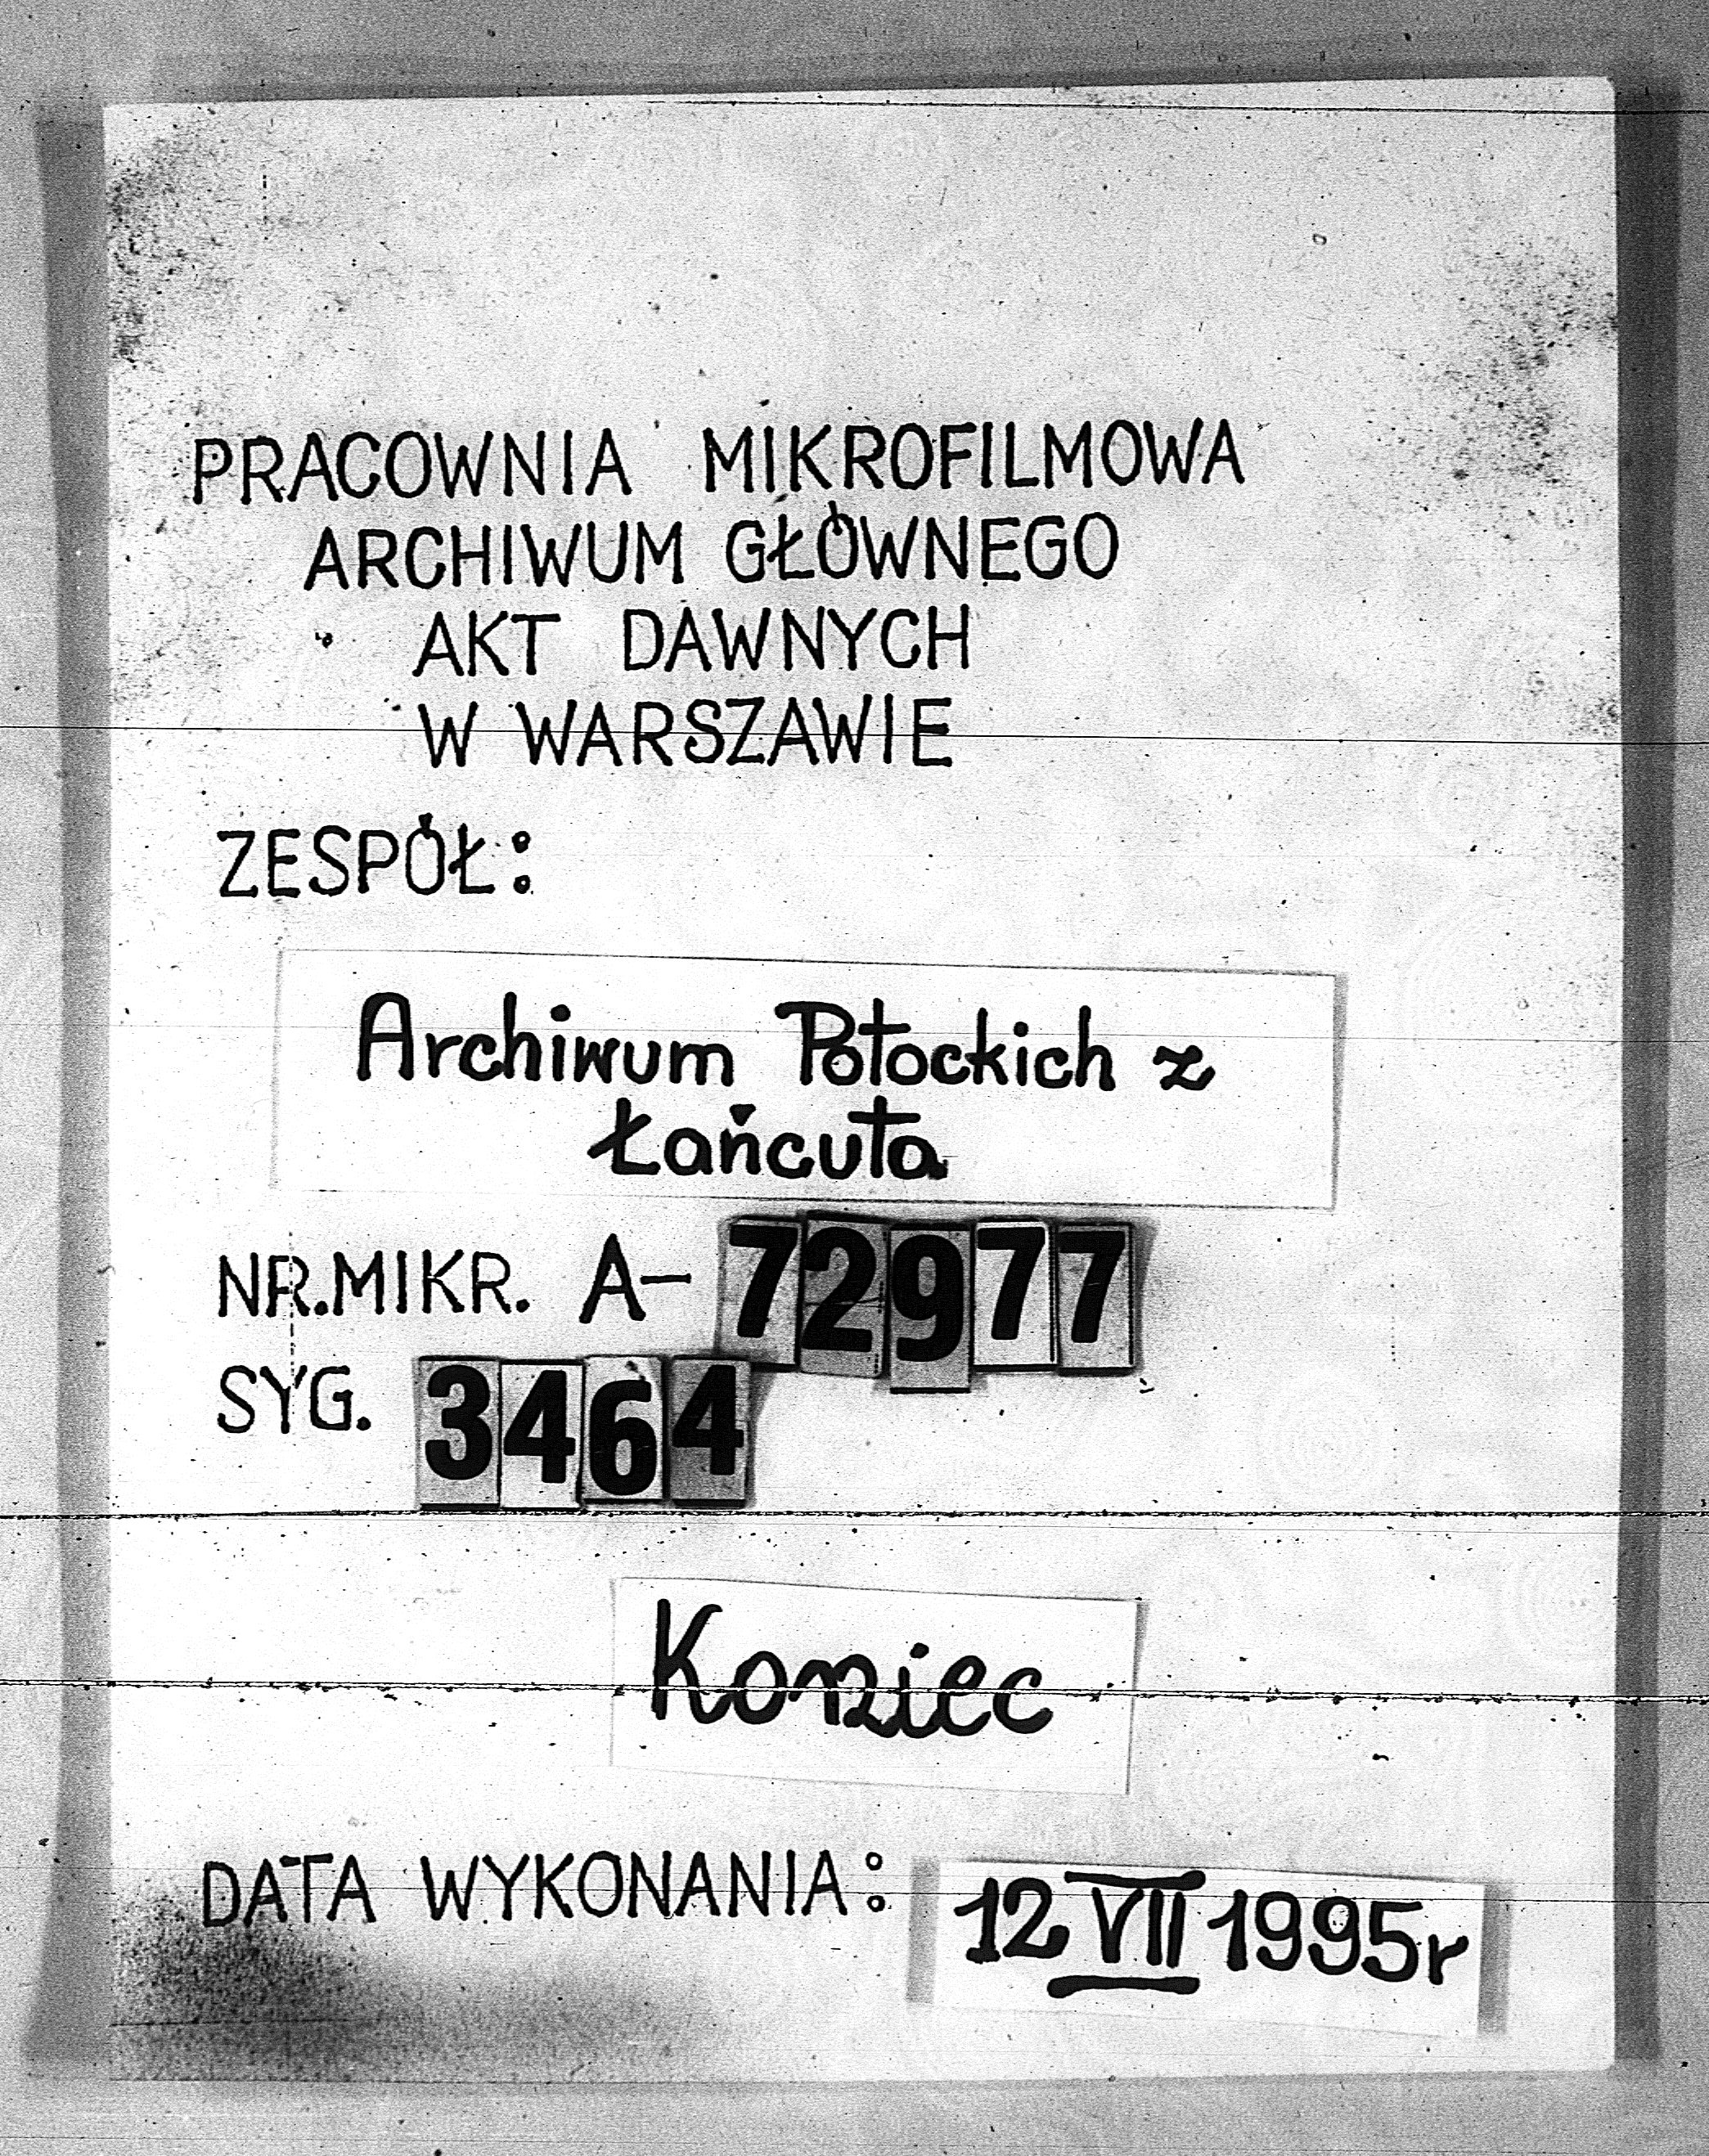 PRACOWNIA MIKROFILMOWA
ARCHIWUM GŁÓWNEGO
AKT DAWNYCH
W WARSZAWIE
ZESPÓŁ:
Archiwum Potockich z
Łańcuta
NR. MIKR. A- 72977
SYG. 3464
Koniec
DATA WYKONANIA: 12 VII 1995r